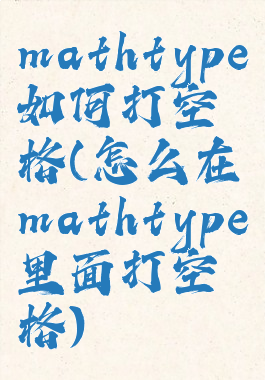 mathtype
如何打空
格(怎么在
mathtype
里面打空
格)